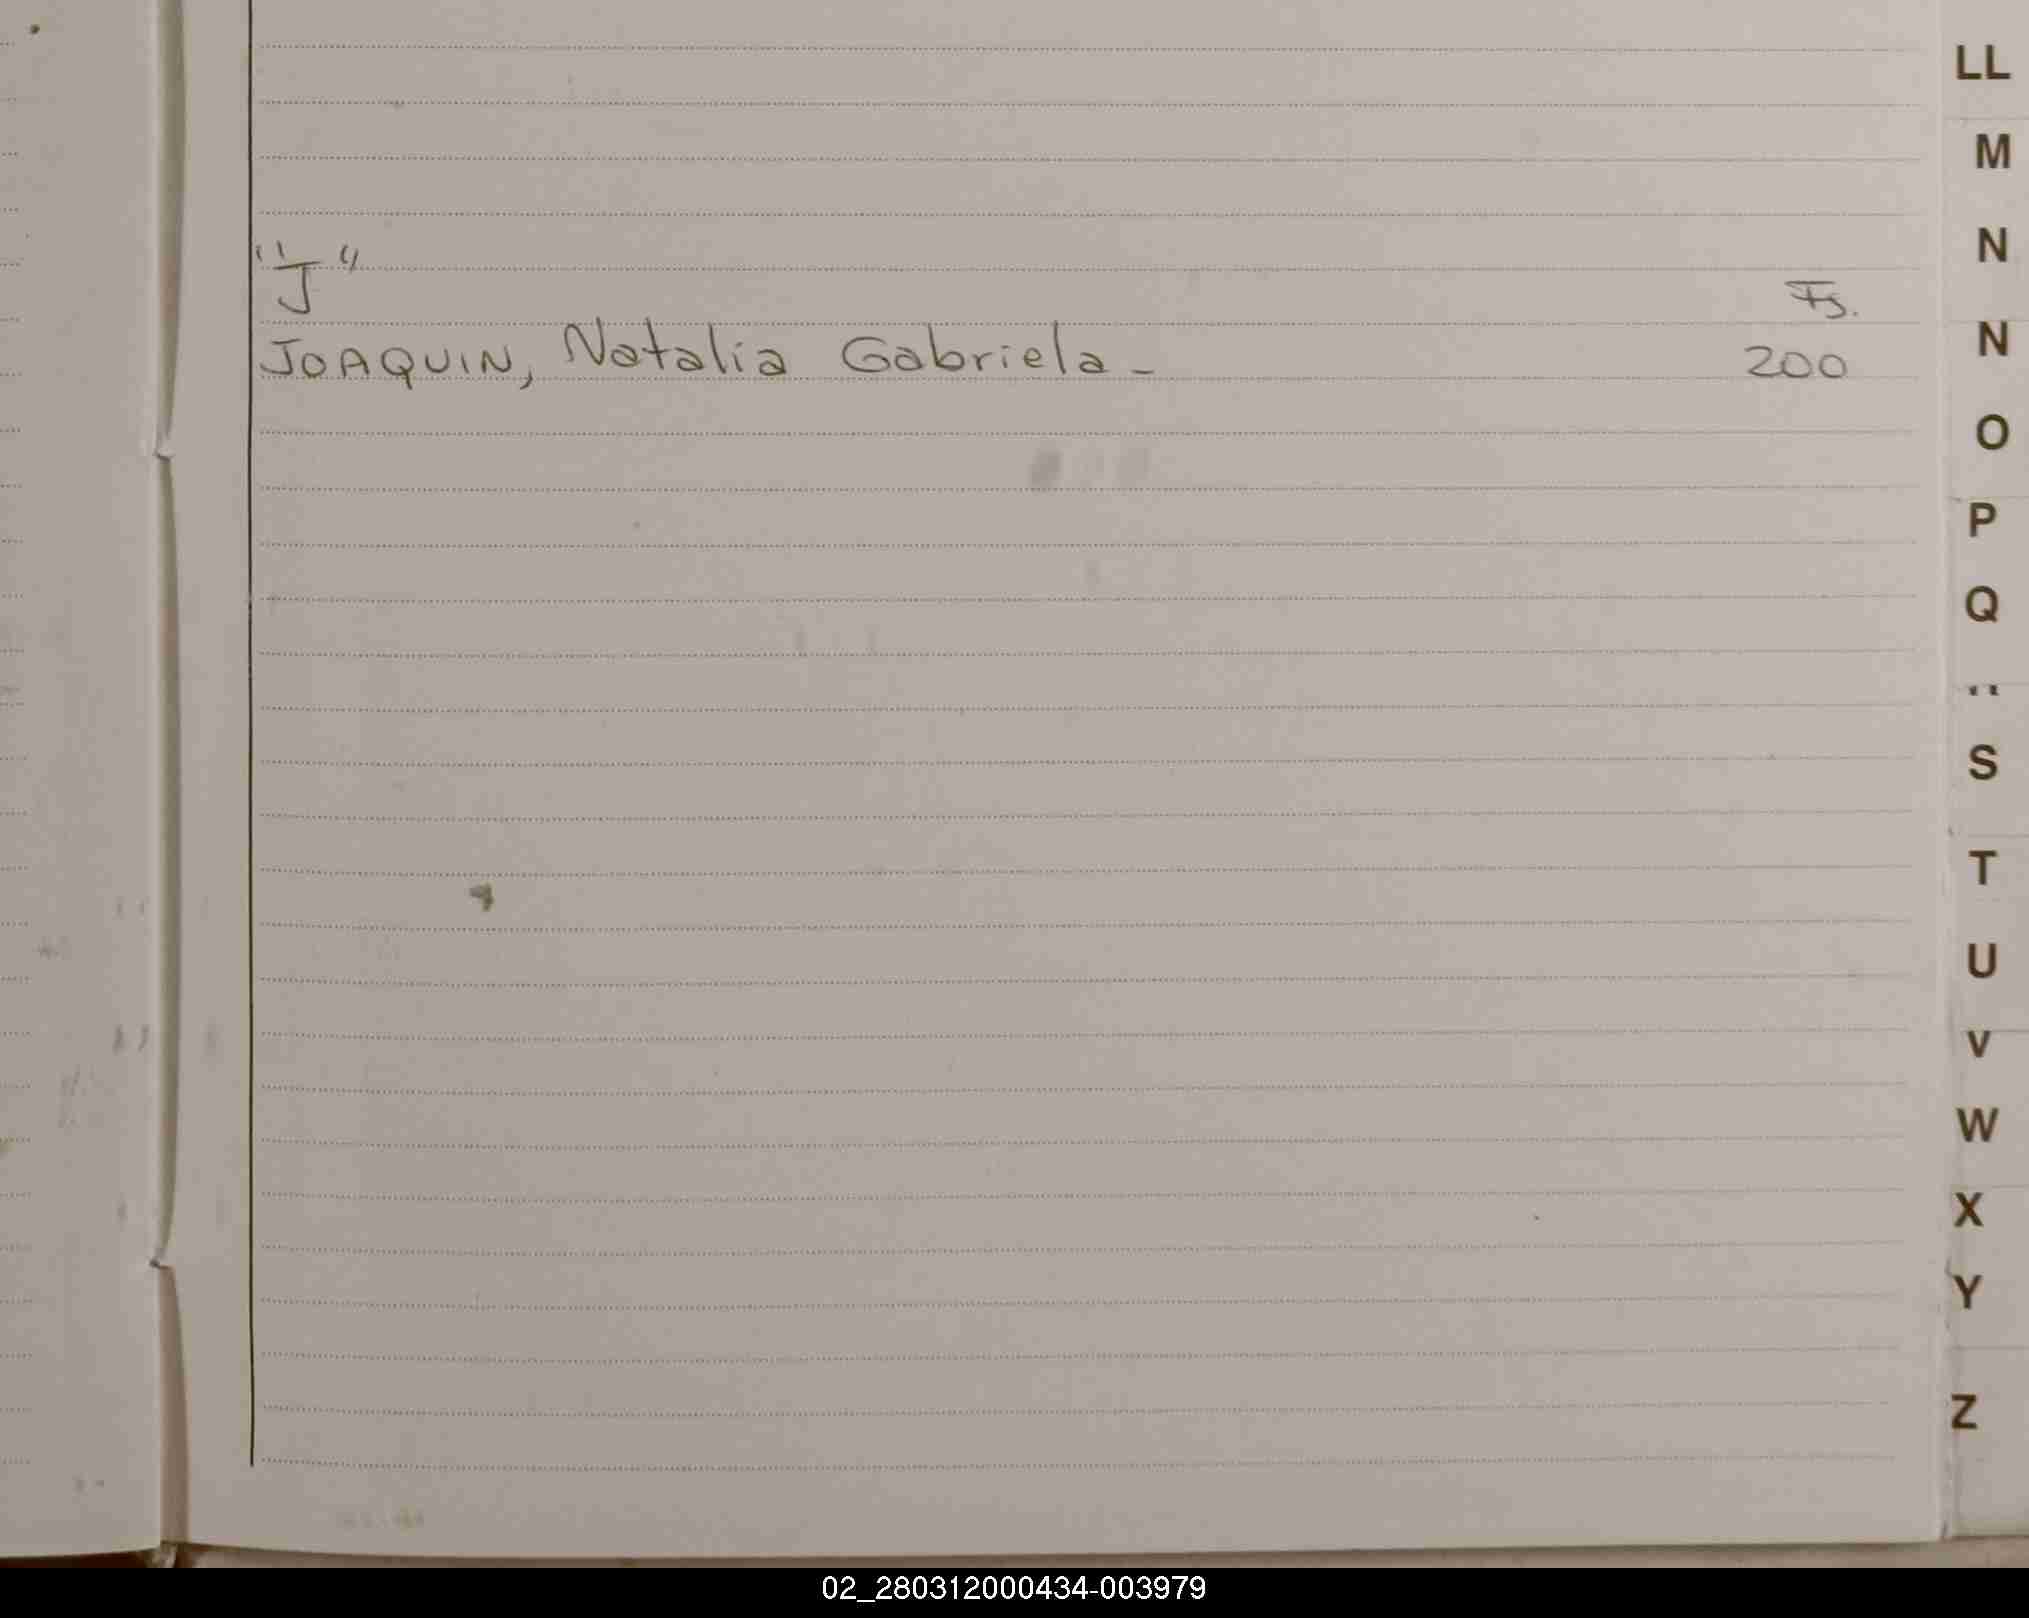 LL
M
N
"J"
Fs.
N
JOAQUIN, Natalia Gabriela - 200
O
P
Q
S
T
U
V
W
X
Y
Z
02_280312000434-003979